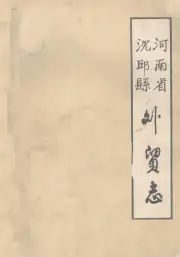 河南省
沈邱縣
外貿志